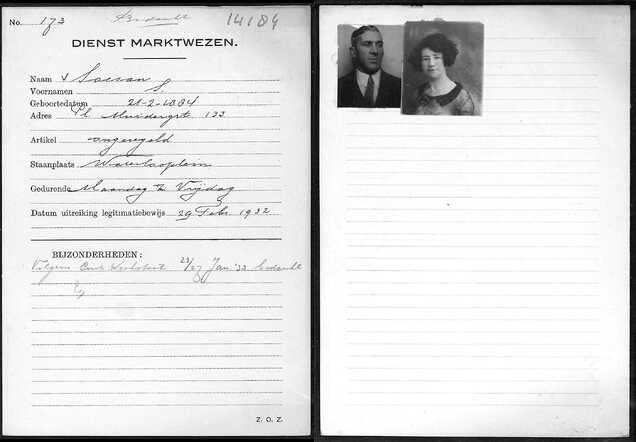 No. 173 Bedankt 14184
DIENST MARKTWEZEN.
Naam v Soesan
Voornamen S.
Geboortedatum 21-2-1884
Adres Pl. Muidergrt. 133
Artikel ongeregeld
Staanplaats Waterlooplein
Gedurende Maandag t/m Vrijdag
Datum uitreiking legitimatiebewijs 29 Febr 1932
BIJZONDERHEDEN:
Volgens 23/27 Jan '33 bedankt
Z. O. Z.